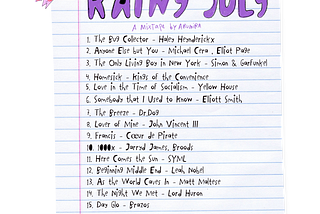 RAINY JULY
A MIXTAPE BY
1. The Bug Collector - Haley Heynderickx
2. Anyone Else but You - Michael Cera, Elliot Page
3. The Only Living Boy in New York - Simon & Garfunkel
4. Homesick - Kings of the Convenience
5. Love in the Time of Socialism - Yellow House
6. Somebody that I Used to Know - Elliott Smith
7. The Breeze - Dr.Dog
8. Lover of Mine - John Vincent III
9. Francis - Cœur de Pirate
10. 1000x - Jarryd James, Broods
11. Here Comes the Sun - SYML
12. Beginning Middle End - Leah Nobel
13. As the World Caves In - Matt Maltese
14. The Night We Met - Lord Huron
15. Day Glo - Brazos